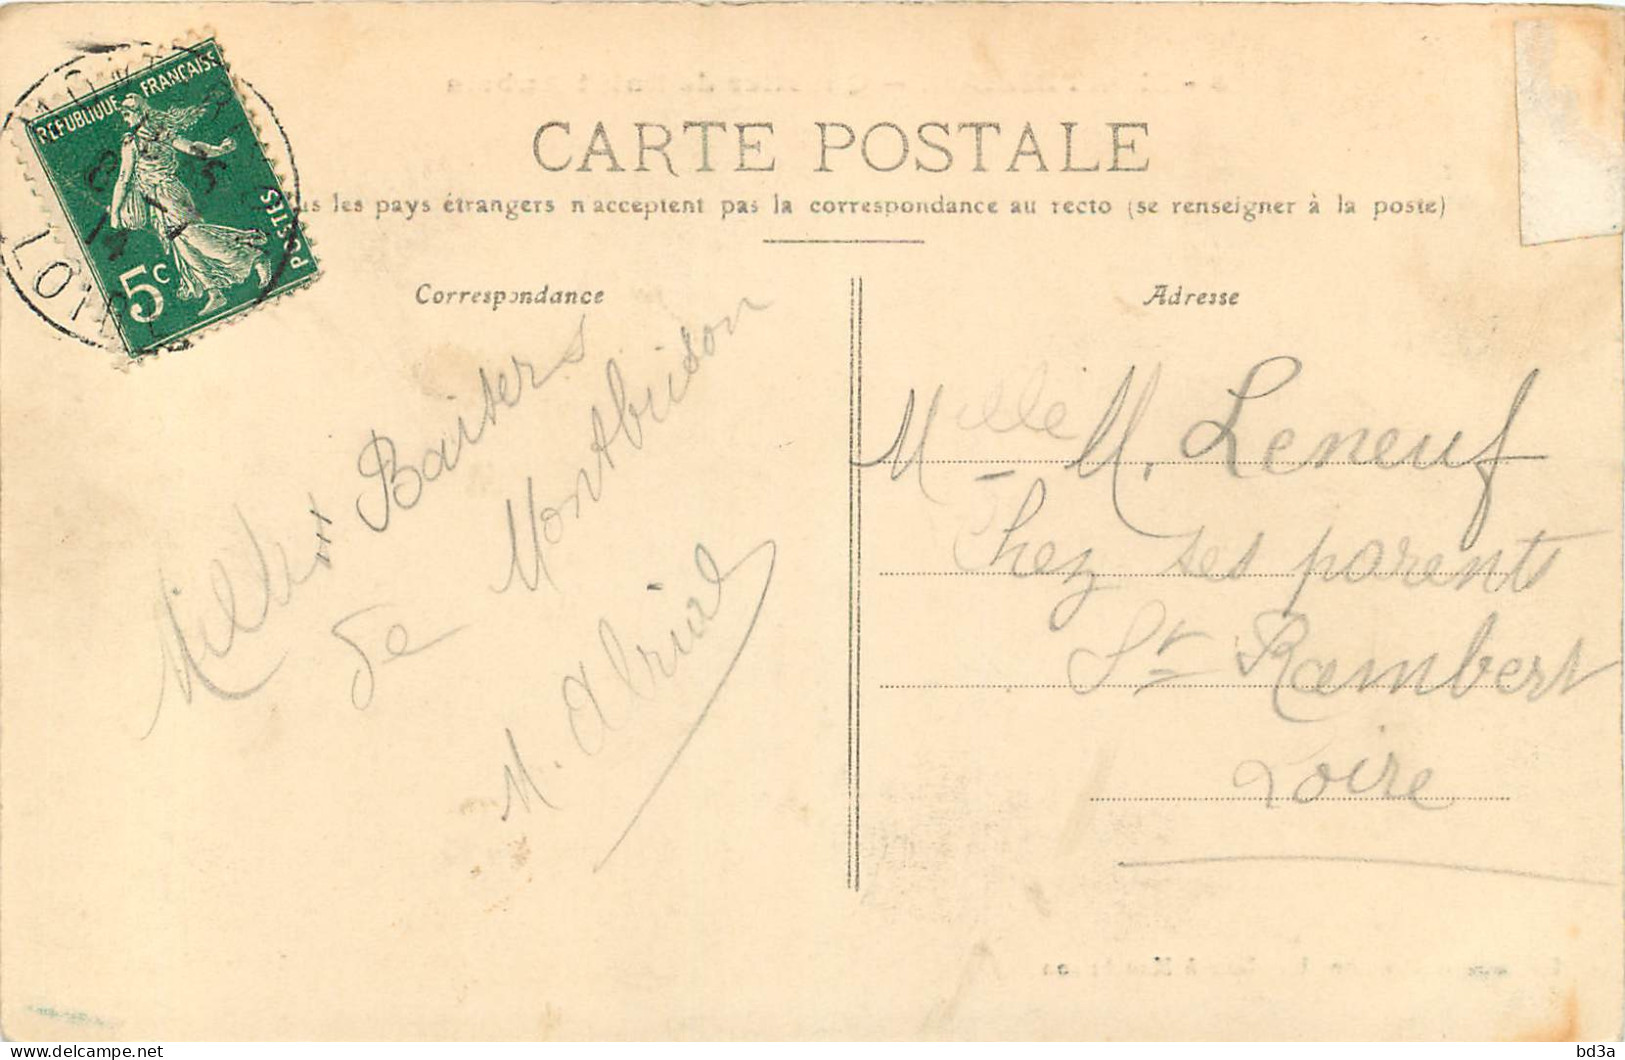 RÉPUBLIQUE FRANÇAISE
POSTES
5c
LOIRE
CARTE POSTALE
les pays étrangers n'acceptent pas la correspondance au recto (se renseigner à la poste)
Correspondance
Adresse
Baisers
de Montbrison
M. Abrial
Melle M. Leneuf
Chez ses parents
St Rambert
Loire
bd3a